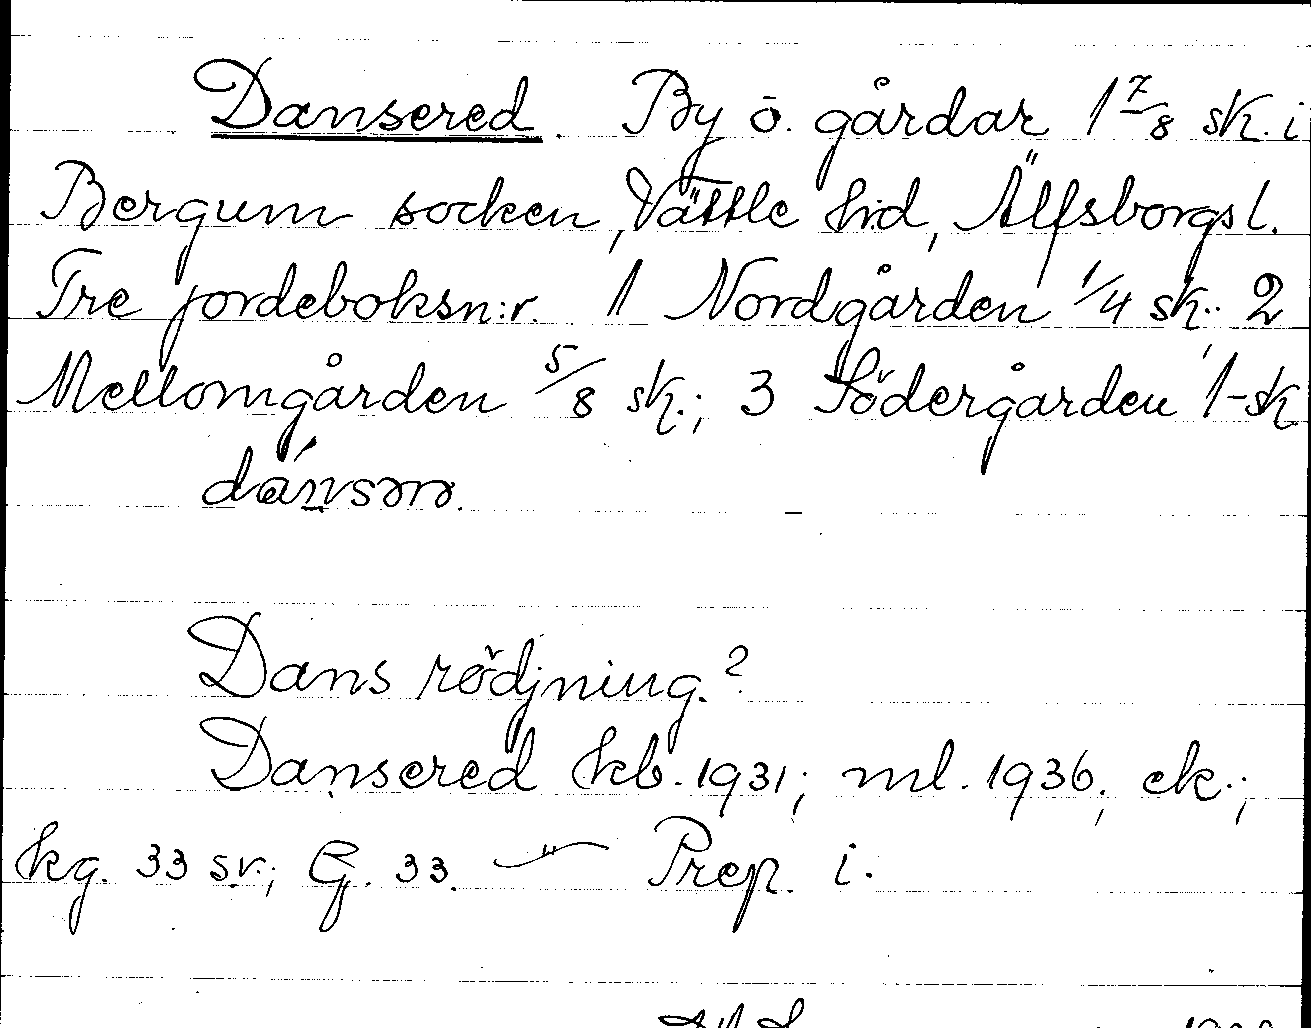 Dansered. By o. gårdar 1 7/8 sk. i
Bergum socken, Vättle hd, Älfsborgs l.
Tre jordeboksn:r. 1 Nordgården 1/4 sk.. 2
Mellomgården 5/8 sk.; 3 Södergården 1-sk
Dans rödjning.?
Dansered kb. 1931; ml. 1936; ek.;
kg. 33 sv.; G. 33. Prep. i.